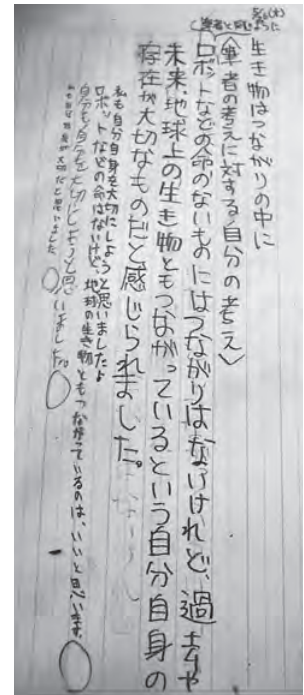 5/20(水)
筆者と同じように
生き物はつながりの中に
〈筆者の考えに対する自分の考え〉
ロボットなどの命のないものにはつながりはないけれど、過去や
未来、地球上の生き物ともつながっているという自分自身の
存在が大切なものだと感じられました。
私も自分自身を大切にしようと思いましたよ
ロボットなどの命はないけど、地球の生き物ともつながっているのは、いいと思います。
自分も自分を大切にしようと思いました。